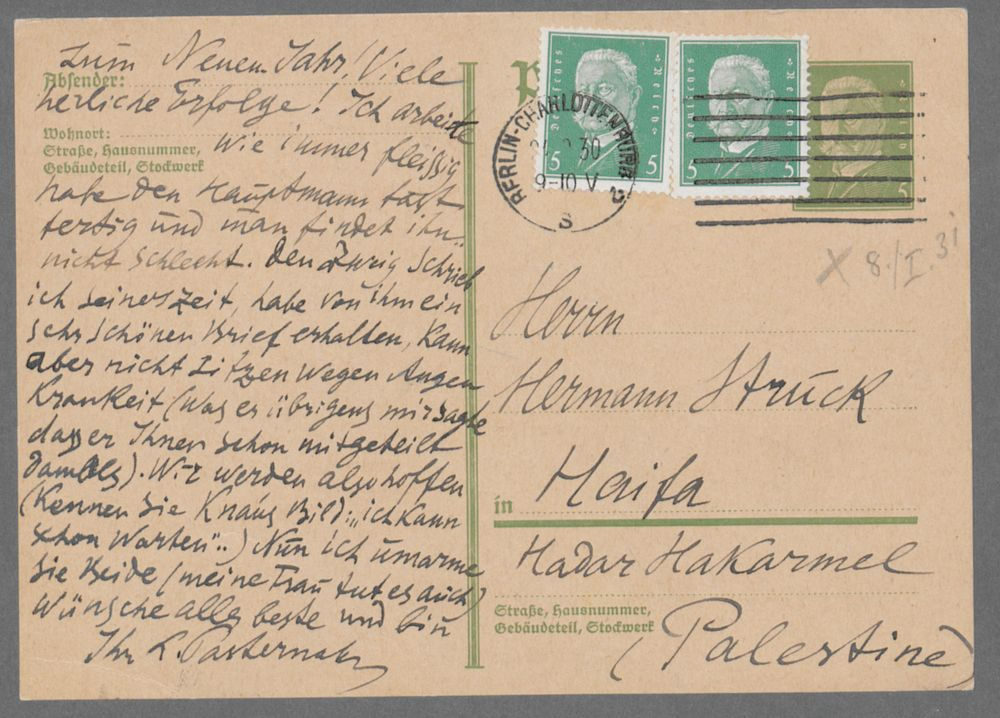 zum Neuen Jahr! Viele
Absender:
herliche Erfolge! Ich arbeite
Wohnort:
Straße, Hausnummer,
Gebäudeteil, Stockwerk
wie immer fleissig
habe den Hauptmann fast
fertig und man findet ihn
nicht schlecht. Den Zweig schrieb
ich seinerszeit, habe von ihm ein
sehr schönen Brief erhalten, kann
aber nicht sitzen wegen Augen
Krankeit (was er übrigens mir sagte
dass er Ihnen schon mitgeteilt
damals). Wir werden also hoffen
(Kennen Sie Knaus Bild: „ich kann
schon warten"..) Nun ich umarme
Sie Beide (meine Frau tut es auch)
Wünsche alles beste und bin
Ihr L. Pasternak
Deutsches Reich
5 5
Deutsches Reich
5 5
5
BERLIN-CHARLOTTENBURG 2
30
9-10 V
S
X 8./I. 31
Herrn
Hermann Struck
in Haifa
Hadar Hakarmel
Straße, Hausnummer,
Gebäudeteil, Stockwerk
(Palestine)